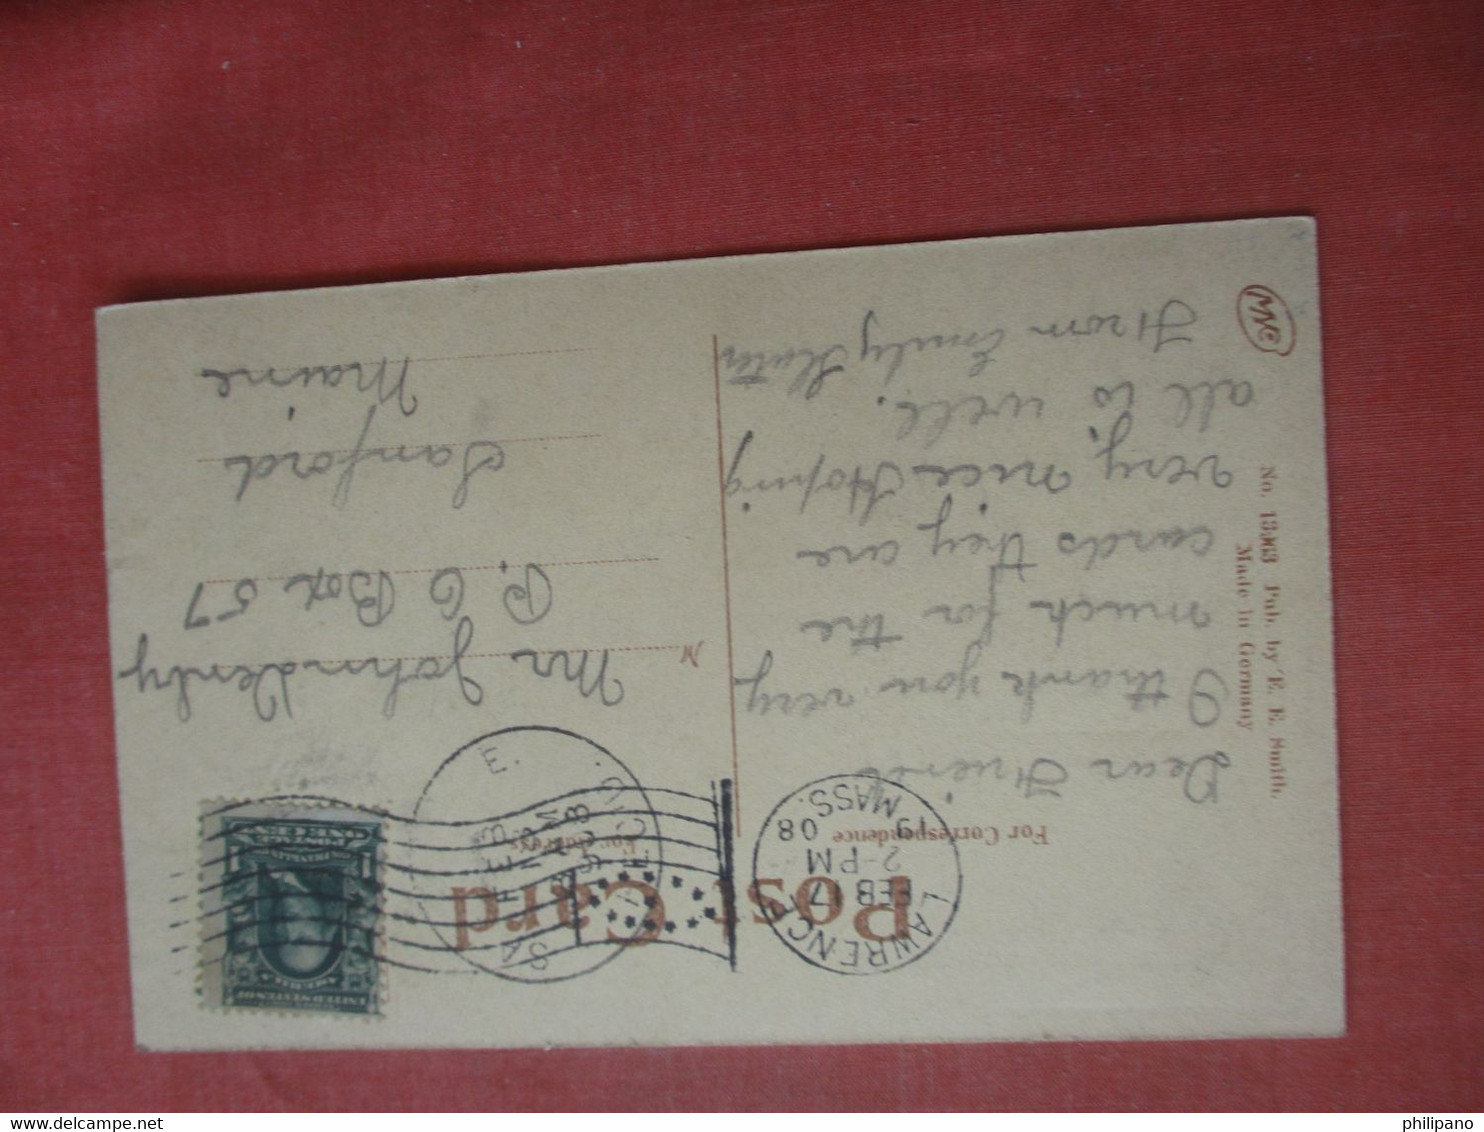 Post Card
For Correspondence
For Address
LAWRENCE
FEB 17
2-PM
19 08
MASS.
FEB
UNITED STATES OF
AMERICA
Dear Friend
I thank you very
much for the
cards they are
very nice Hoping
all is well.
From Emily
Mr John
P. O Box 57
Sanford
Maine
M
No. Pub. by E. E. Smith.
Made in Germany
philipano